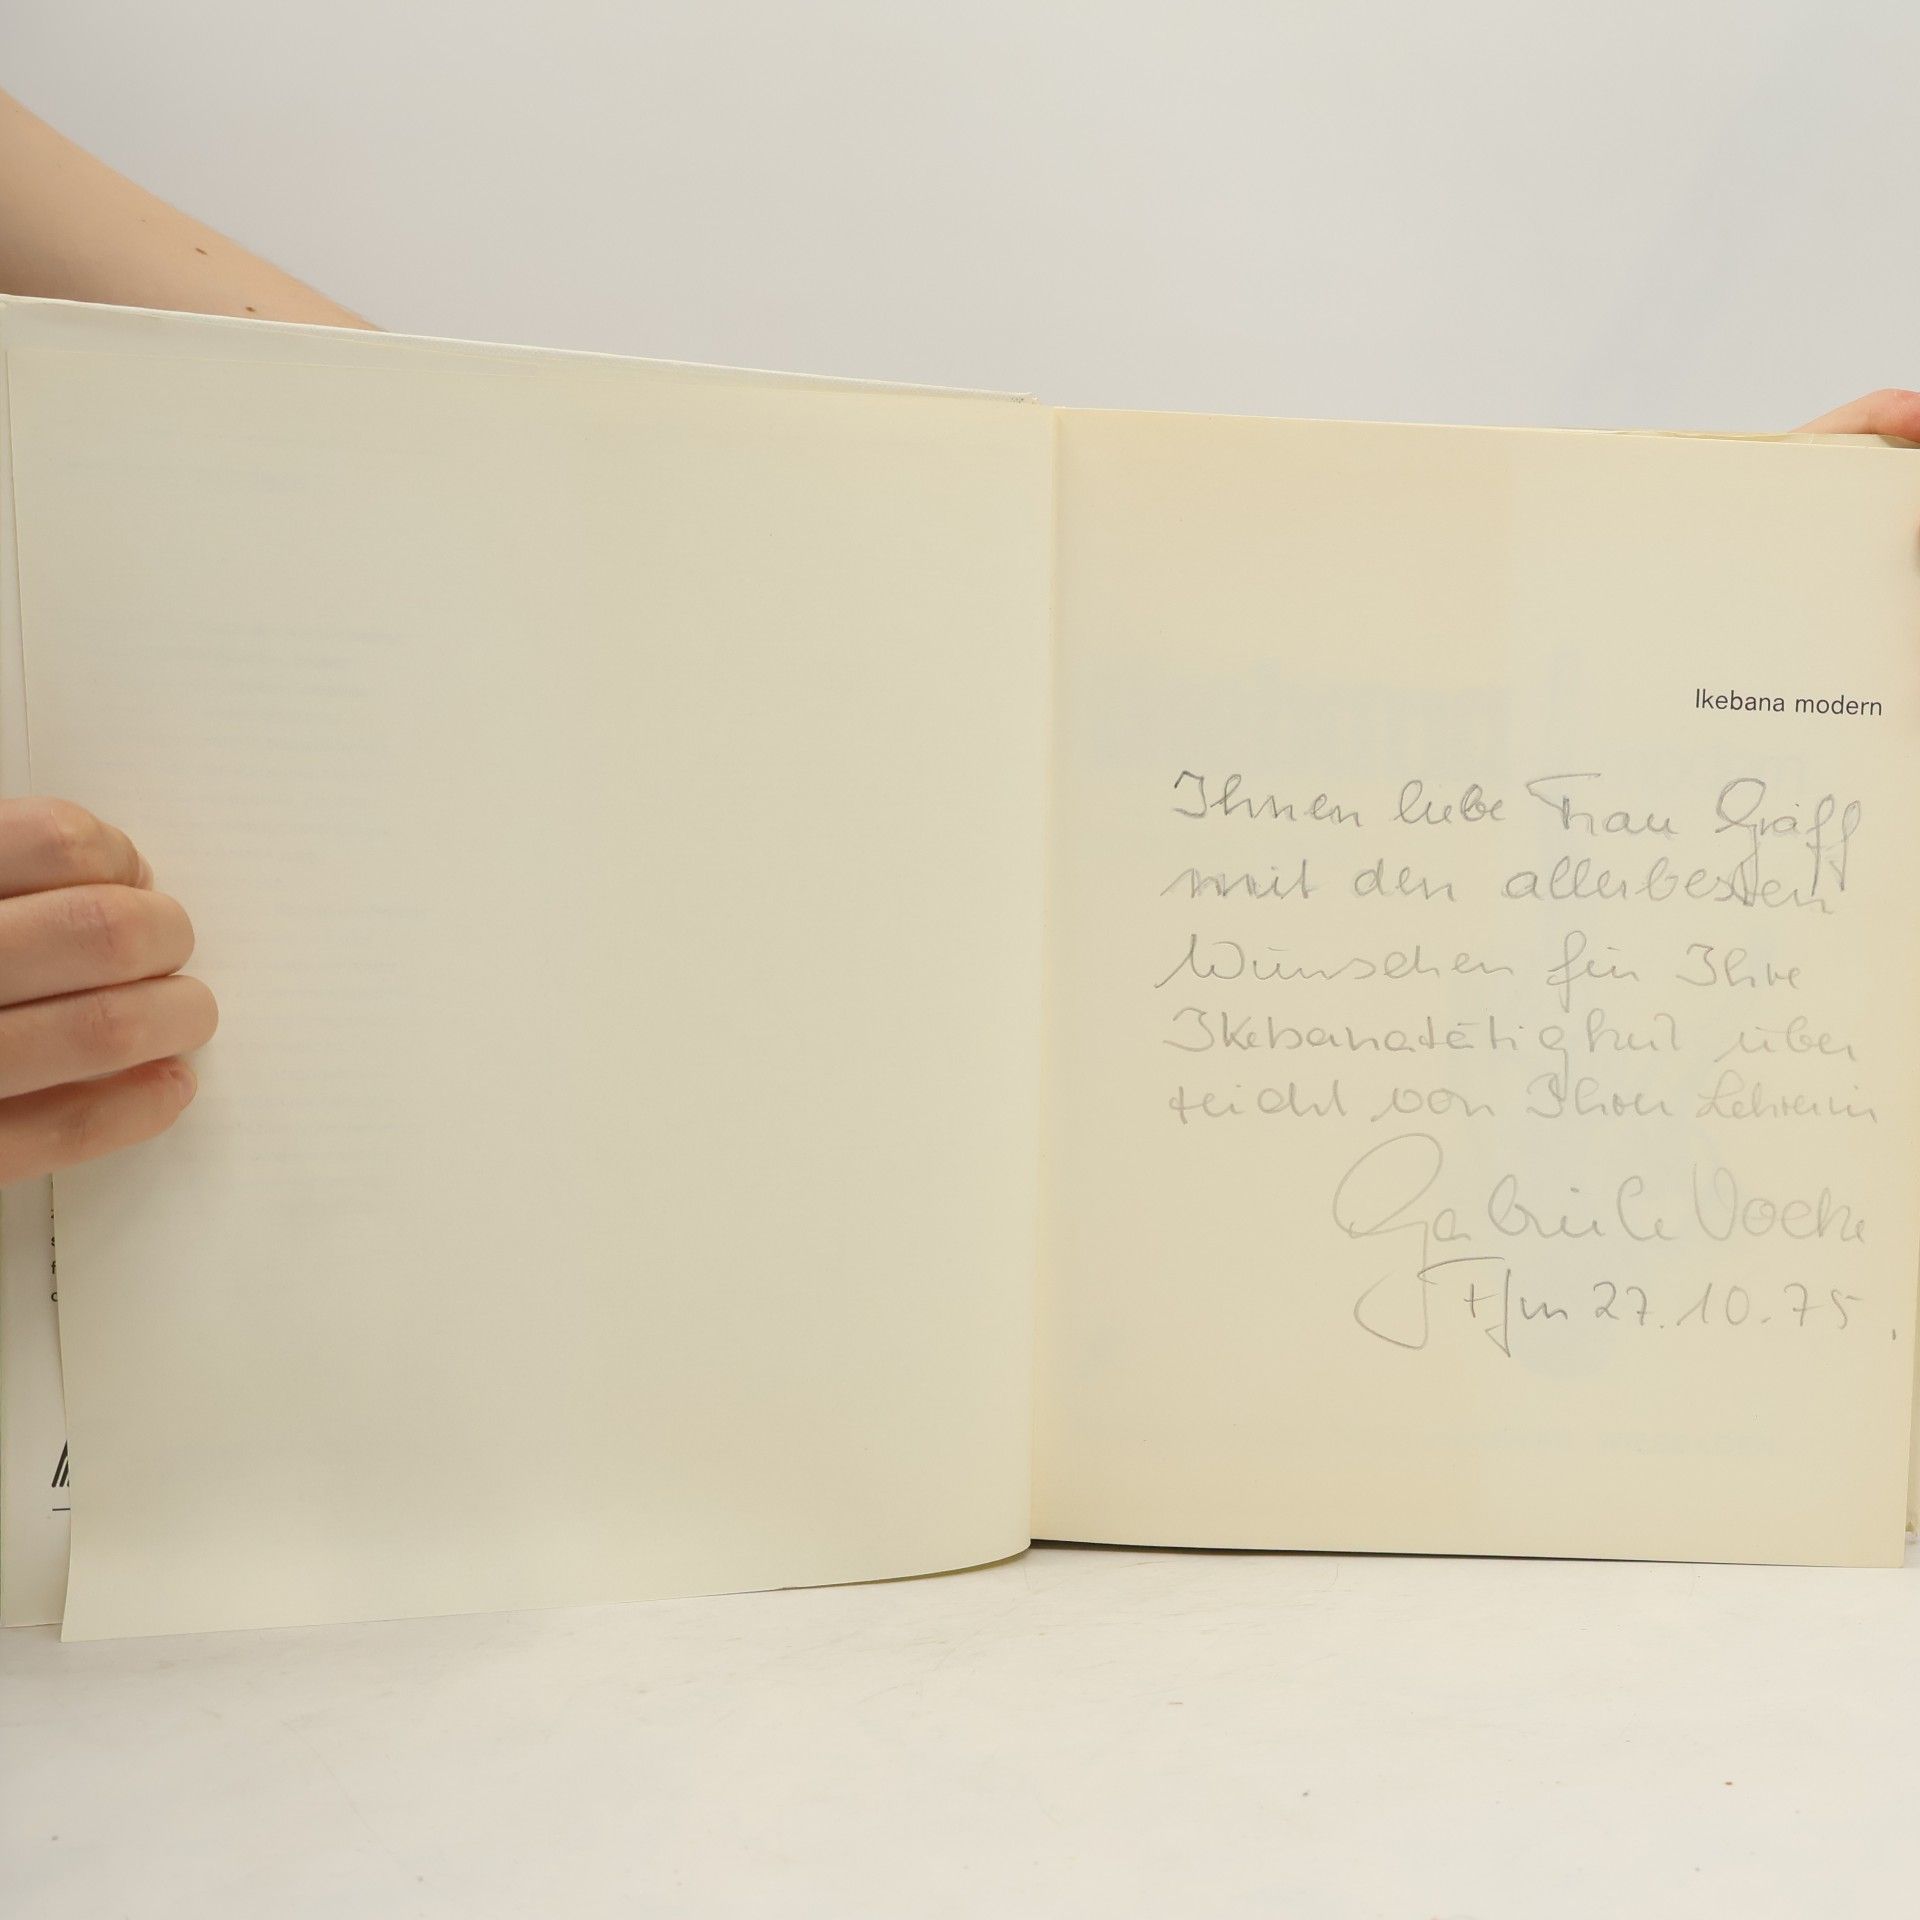 Ikebana modern
Ihnen liebe Frau Gräff
mit den allerbesten
Wünschen für Ihre
Ikebanatätigkeit über
reicht von Ihrer Lehrerin
Gabriele Vocke
Ffm 27.10.75.